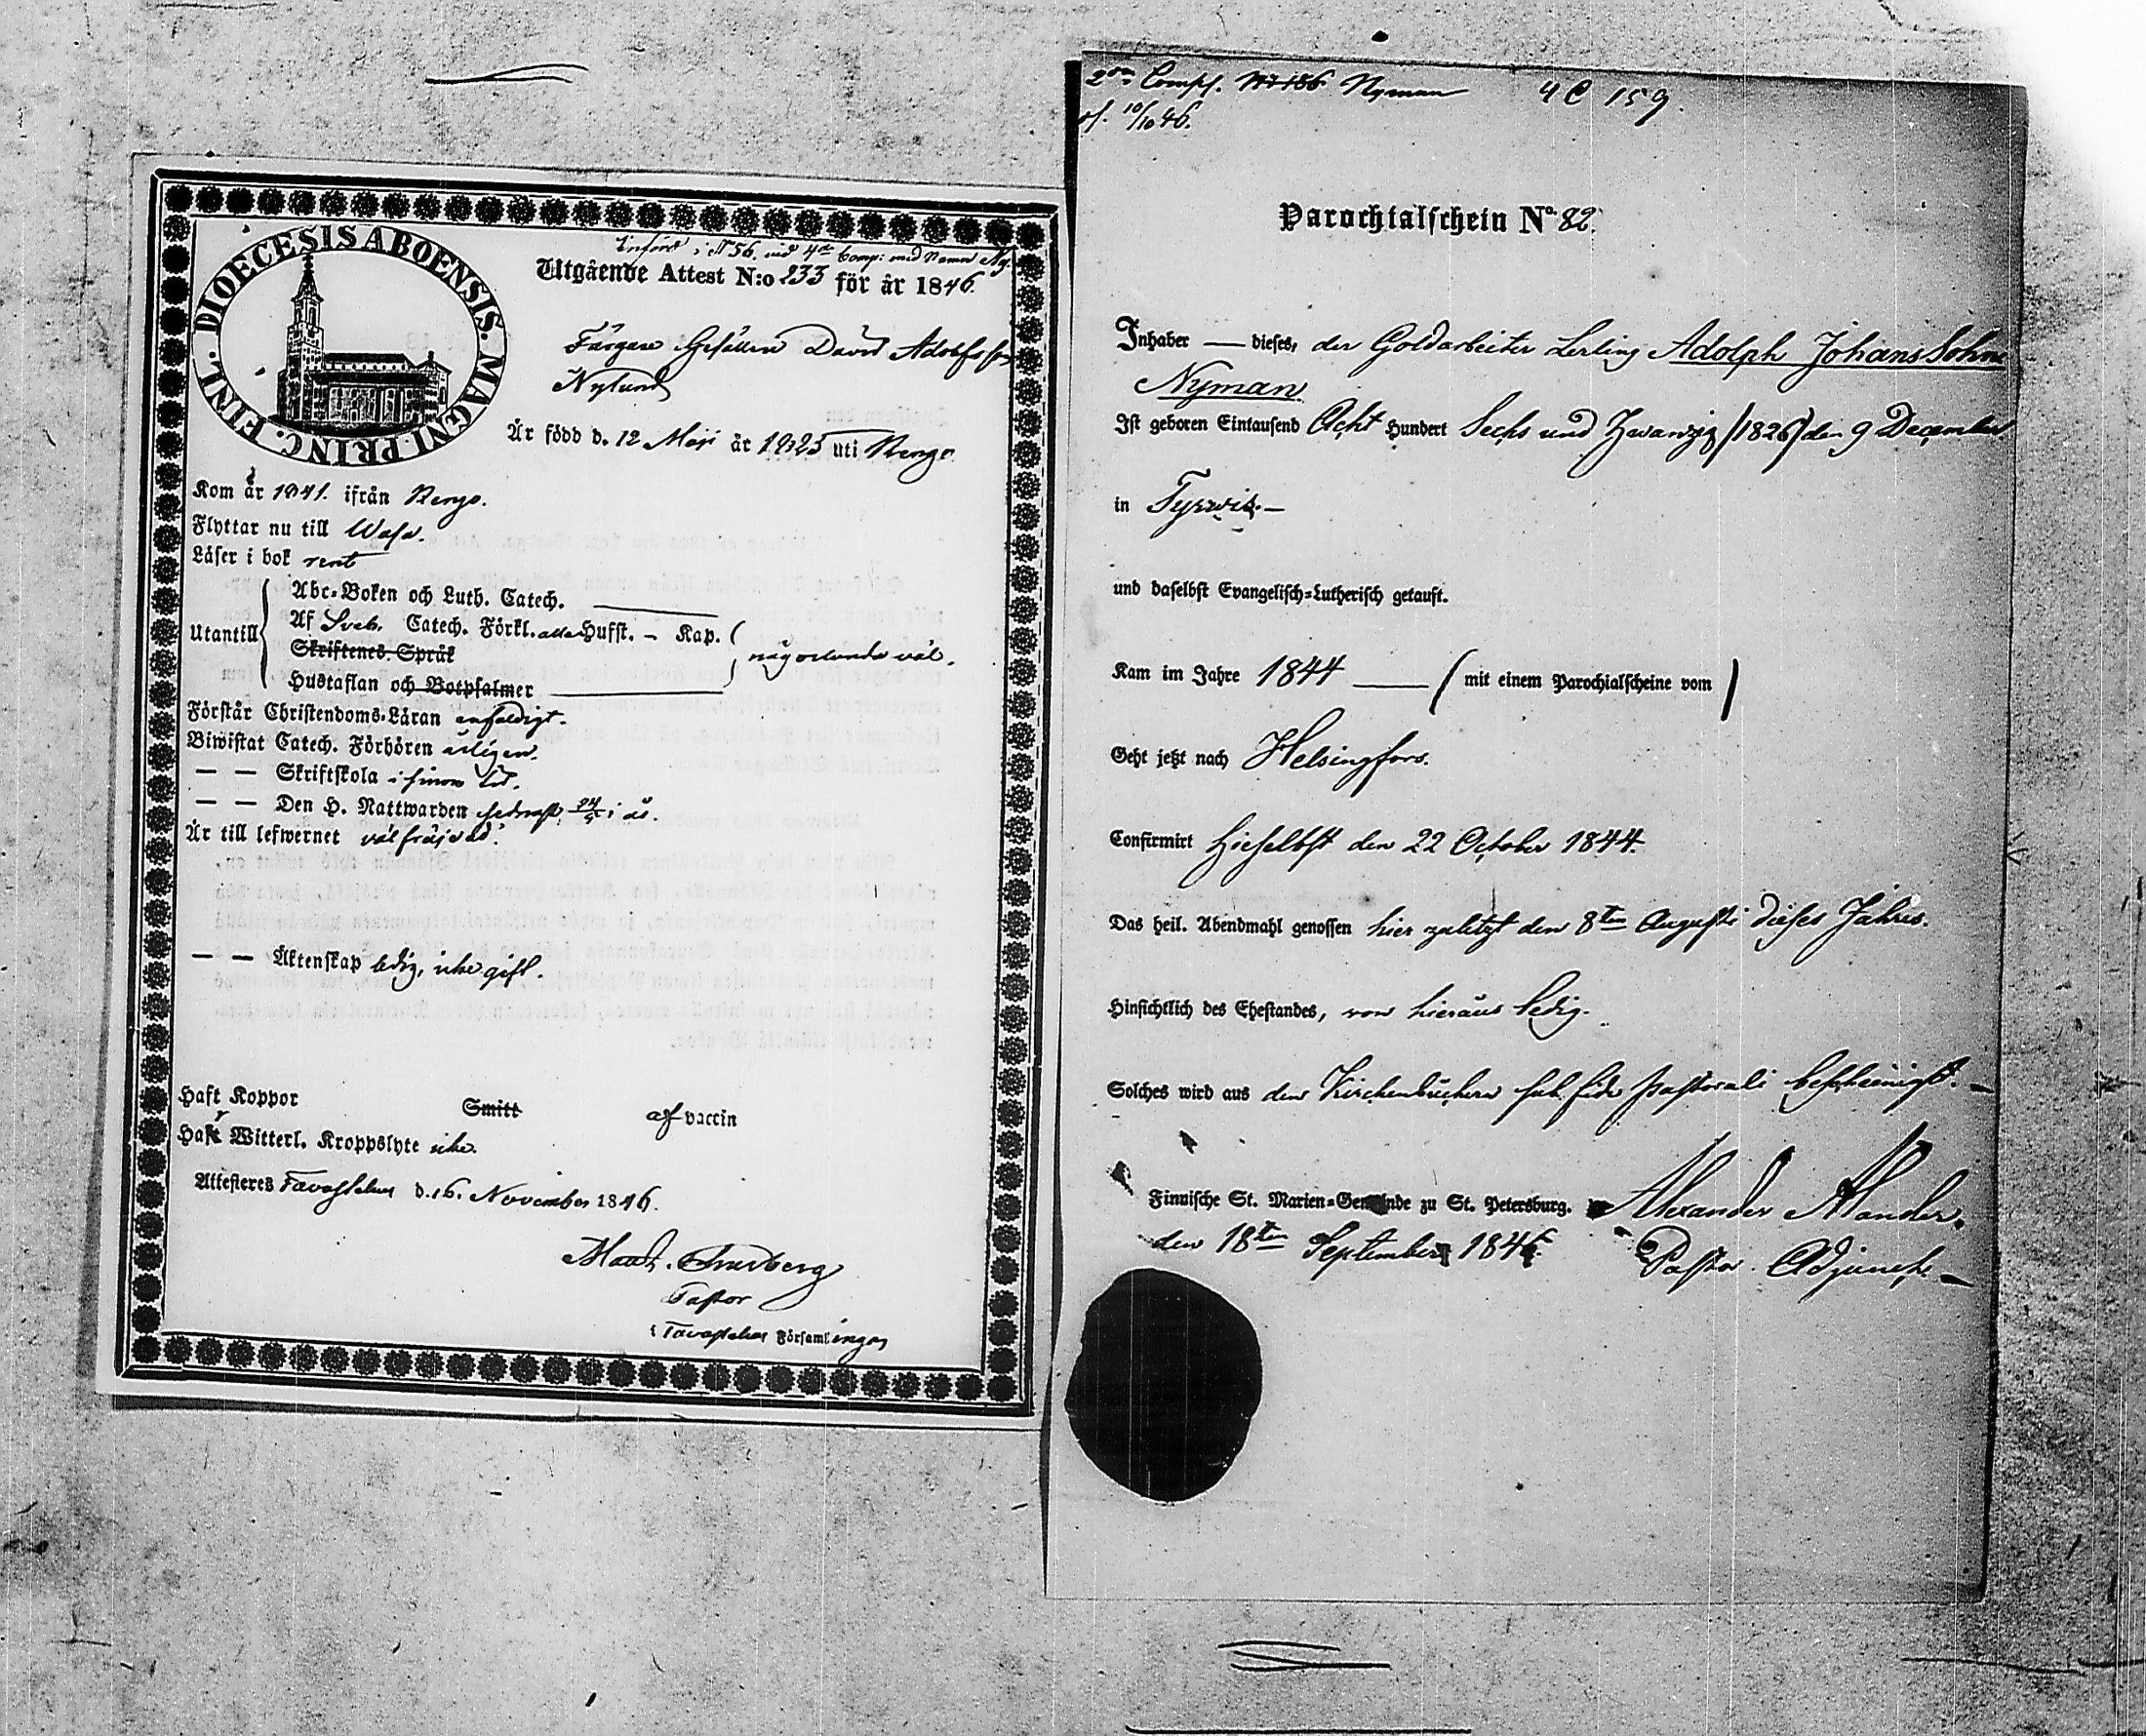 DIOECESIS ABOENSIS. MAGNI PRINC. FINL.
Införd i N 56. vid 4de Comp: med Namn Ny.
Utgående Attest N:o 233 för år 1846.
Färgare Gesällen David Adolfsson
Nylund
Är född d. 12 Maji år 1823 uti Rengo
Kom år 1841. ifrån Rengo.
Flyttar nu till Wasa.
Läser i bok rent
Utantill
Abc-Boken och Luth. Catech.
Af Sveb. Catech. Förkl. alla Hufst. - Kap.
Skriftenes Språk
någorlunda väl.
Hustaflan och Botpsalmer
Förstår Christendoms-Läran enfaldigt.
Biwistat Catech. Förhören årligen.
— — Skriftskola i sinom tid.
— — Den H. Nattwarden sednast 24/5 i år.
Är till lefwernet väl fräjdad.
— — Äktenskap ledig, icke gift.
Haft Koppor Smitt af vaccin
Har Witterl. Kroppslyte icke.
Attesteres Tavastehus d. 16. November 1846.
Math.
Pastor
i Tavastehus Församlingar
2dra Comp. N:o 186 Nyman 4 C 159.
10/10 46.
Parochialschein No 82.
Inhaber — dieses, der Goldarbeiter Lerling Adolph Johans Sohn
Nyman
Ist geboren Eintausend Acht Hundert Sechs und Zwanzig /1826/ den 9 December
in Tyrwis. —
und daselbst Evangelisch-Lutherisch getauft.
Kam im Jahre 1844 — (mit einem Parochialscheine vom )
Geht jetzt nach Helsingfors.
Confirmirt hieselbst den 22 October 1844.
Das heil. Abendmahl genossen hier zuletzt den 8ten Augusti dieses Jahres.
Hinsichtlich des Ehestandes, von hieraus ledig.
Solches wird aus den Kirchenbüchern sub fide pastorali bescheinigt. —
Finnische St. Marien-Gemeinde zu St. Petersburg. Alexander
den 18ten September 1846. Pastor Adjunct. —